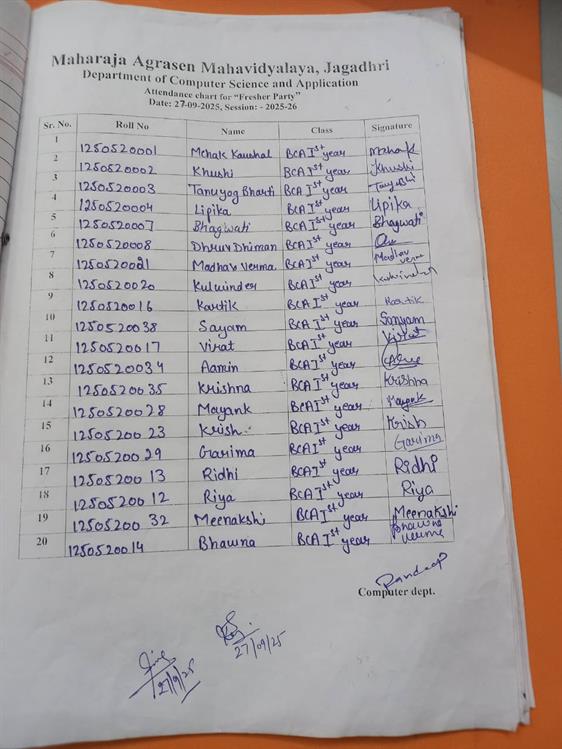 Maharaja Agrasen Mahavidyalaya, Jagadhri
Department of Computer Science and Application
Attendance chart for "Fresher Party"
Date: 27-09-2025, Session: - 2025-26
Sr. No. Roll No Name Class Signature
1 1250520001 Mehak Kaushal BCA Ist year Mehak
2 1250520002 Khushi BCA Ist year Khushi
3 1250520003 Tanuyog Bharti BCA Ist year
4 1250520004 Lipika BCA Ist year Lipika
5 1250520007 Bhagwati BCA Ist year Bhagwati
6 1250520008 Dhruv Dhiman BCA Ist year
7 1250520021 Madhav Verma BCA Ist year Madhav Verma
8 1250520020 Kulwinder BCA Ist year Kulwinder
9 1250520016 Kartik BCA Ist year Kartik
10 1250520038 Sayam BCA Ist year Sanyam
11 1250520017 Virat BCA Ist year Virat
12 1250520034 Aamin BCA Ist year
13 1250520035 Krishna BCA Ist year Krishna
14 1250520028 Mayank BCA Ist year Mayank
15 1250520023 Krish BCA Ist year Krish
16 1250520029 Garima BCA Ist year Garima
17 1250520013 Ridhi BCA Ist year Ridhi
18 1250520012 Riya BCA Ist year Riya
19 1250520032 Meenakshi BCA Ist year Meenakshi
20 1250520014 Bhawna BCA Ist year Bhawna Verma
Pandeep
Computer dept.
27/09/25
27/9/25